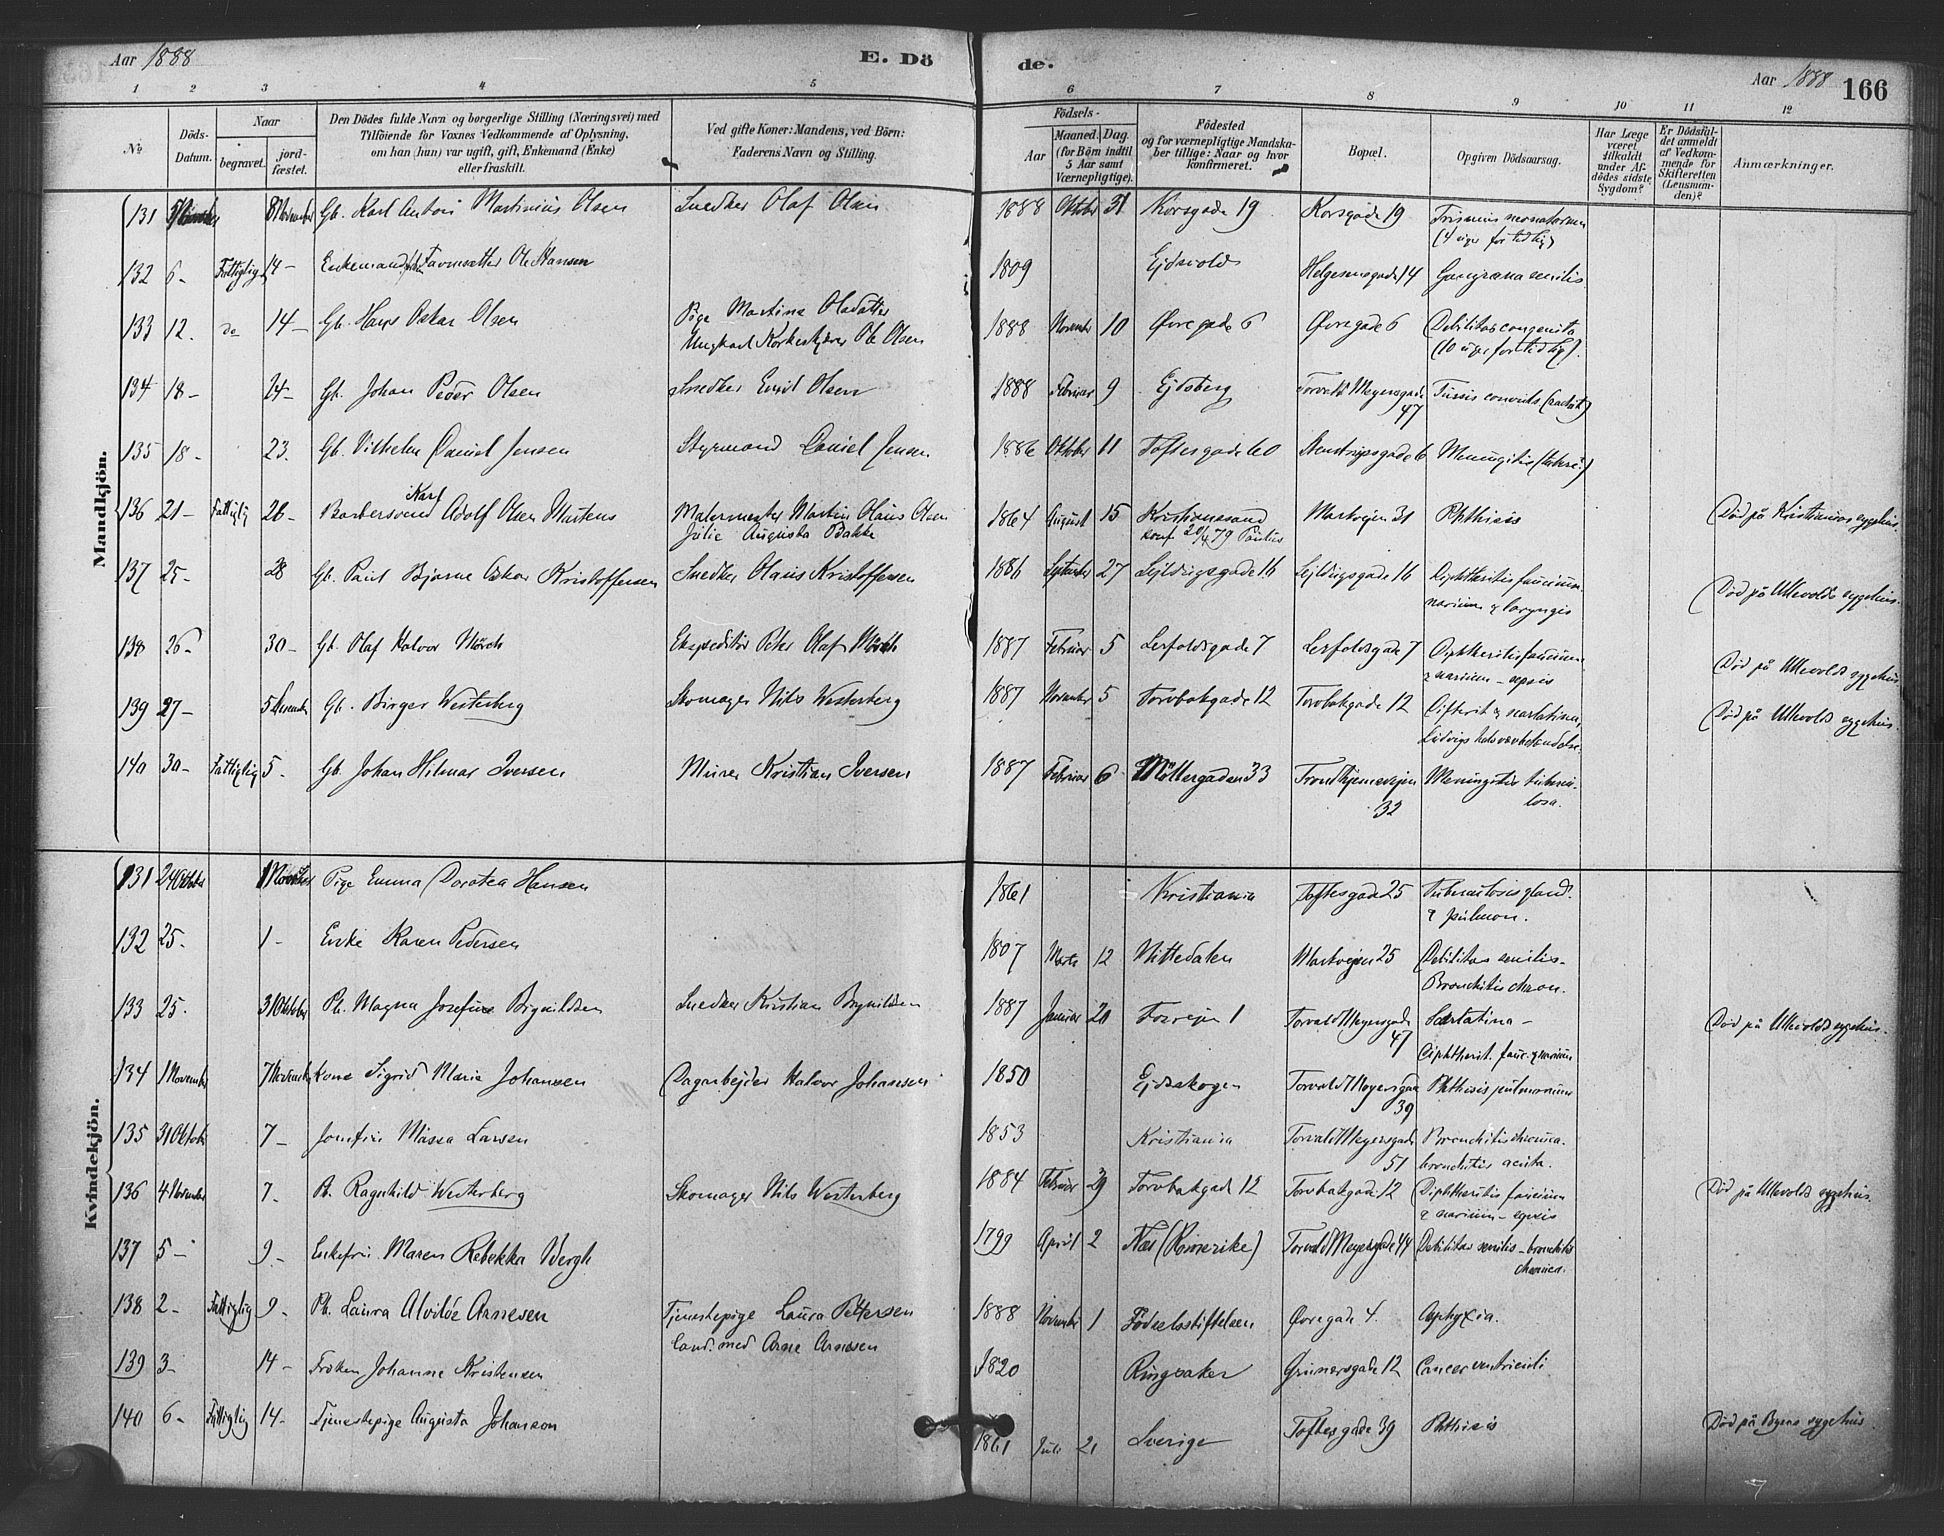 Aar 1888
E. Dö
de.
Aar 1888
166
1 2 3 4 5 6 7 8 9 10 11 12
№
Döds-Datum.
Naar
begravet.
jord-fæstet.
Den Dödes fulde Navn og borgerlige Stilling (Næringsvei) med
Tilföiende for Voxnes Vedkommende af Oplysning,
om han (hun) var ugift, gift, Enkemand (Enke)
eller fraskilt.
Ved gifte Koner: Mandens, ved Börn:
Faderens Navn og Stilling.
Födsels-
Aar
Maaned. Dag.
(for Börn indtil
5 Aar samt
Værnepligtige).
Födested
og for værnepligtige Mandska-
ber tillige: Naar og hvor
konfirmeret.
Bopæl.
Opgiven Dödsaarsag.
Har Læge
været
tilkaldt
under Af-
dödes sidste
Sygdom?
Er Dödsfal-
det anmeldt
af Vedkom-
mende for
Skifteretten
(Lensman-
den)?
Anmærkninger.
Mandkjön.
131 8 November Gb. Karl Anton Martinius Olsen Snedker Olaf Olsen 1888 Oktober 31 Korsgade 19 Korsgade 19 Trismus neonatorum
(4 uger for tidlig)
132 6- Fattiglig 14- Enkemand Ole Hansen 1809 Ejdsvold Helgesensgade 14 Gangræna senilis
133 12. do 14- Gb. Hans Oskar Olsen Pige Martine Olsdatter
Ungkarl Korkeskjærer Ole Olsen 1888 November 10 Øvregade 6 Øvregade 6 Debilitas congenita
(10 uger for tidlig).
134 18- 24- Gb. Johan Peder Olsen Snedker Enud Olsen 1888 Februar 9 Ejdsberg Torvald Meyersgade
47 Tussis convuls
135 18- 23. Gb. Vilhelm Daniel Jensen Styrmand Daniel Jensen 1886 Oktober 11 Toftesgade 60 Steenstrupsgade 6 Meningitis
136 21- Fattiglig 26- Barbersvend Karl Adolf Olsen Martens Malermester Martin Olaus Olsen
Julie Augusta Bakke 1864 August 15 Kristianssand
konf 20/4 79 Paulus Markvejen 31 Phthisis Död på Kristianias sygehus.
137 25- 28 Gb. Paul Bjarne Oskar Kristoffersen Snedker Olaus Kristoffersen 1886 September 27 Sejldugsgade 16 Sejldugsgade 16 Diphtheritis faucium
narium & laryngis Död på Ullevolds sygehus.
138 26- 30- Gb. Olaf Halvor Mörch Ekspeditör Peter Olaf Mörch 1887 Februar 5 Lerfoldsgade 7 Lerfoldsgade 7 Diphtheritis faucium
& narium - sepsis Död på Ullevolds sygehus.
139 27- 5 December Gb. Birger Westerberg Skomager Nils Westerberg 1887 November 5 Torvbakgade 12 Torvbakgade 12 Difterit & scarlatina,
Ludvigs halsvævbetændelse. Död på Ullevolds sygehus.
140 30- Fattiglig 5. Gb. Johan Hilmar Iversen Murer Kristian Iversen 1887 Februar 6 Möllergaden 33 Trondhjemsvejen
32 Meningitis tubercu-
losa.
Kvindekjön.
131 24 Oktober 1 November Pige Emma Dorotea Hansen 1861 Kristiania Toftesgade 25 Tuberculosis gland.
& pulmon.
132 25. 1- Enke Karen Pedersen 1807 Marts 12 Nittedalen Markvejen 25 Debilitas senilis-
Bronchitis chron.
133 25. 31 Oktober Pb. Magna Josefine Brynildsen Snedker Kristian Brynildsen 1887 Januar 20 Fossvejen 1 Torvald Meyersgade
47 Scarlatina-
Diphtherit. fauc. & narium Död på Ullevolds sygehus.
134 1 November 7 November Kone Sigrid Marie Johansen Dagarbejder Halvor Johansen 1850 Ejdskogen Torvald Meyersgade
39 Phthisis pulmonum
135 31 Oktober 7- Jomfru Massa Larsen 1853 Kristiania Torvald Meyersgade
51 Bronchitis chronica.
bronchitis acuta.
136 4 November 7. Pb. Ragnhild Westerberg Skomager Nils Westerberg 1884 Februar 29 Torvbakgade 12 Torvbakgade 12 Diphtheritis faucium
& narium - sepsis Död på Ullevolds sygehus.
137 5- 9- Enkefru Maren Rebekka Bergh 1799 April 2 Næs (Romerike) Torvald Meyersgade 44 Debilitas senilis - bronchitis
chronica.
138 2- Fattiglig 9- Pb. Laura Alvilde Arnesen Tjenestepige Laura Pettersen
Cand. med Arne Arnesen 1888 November 1 Födselsstiftelsen Øvregade 4. Asphyxia.
139 3- 14- Fröken Johanne Kristensen 1820 Ringsaker Grünersgade 12 Cancer ventriculi
140 6- Fattiglig 14- Tjenestepige Augusta Johanson 1861 Juli 21 Sverige Toftesgade 39 Phthisis Död på Byens sygehus